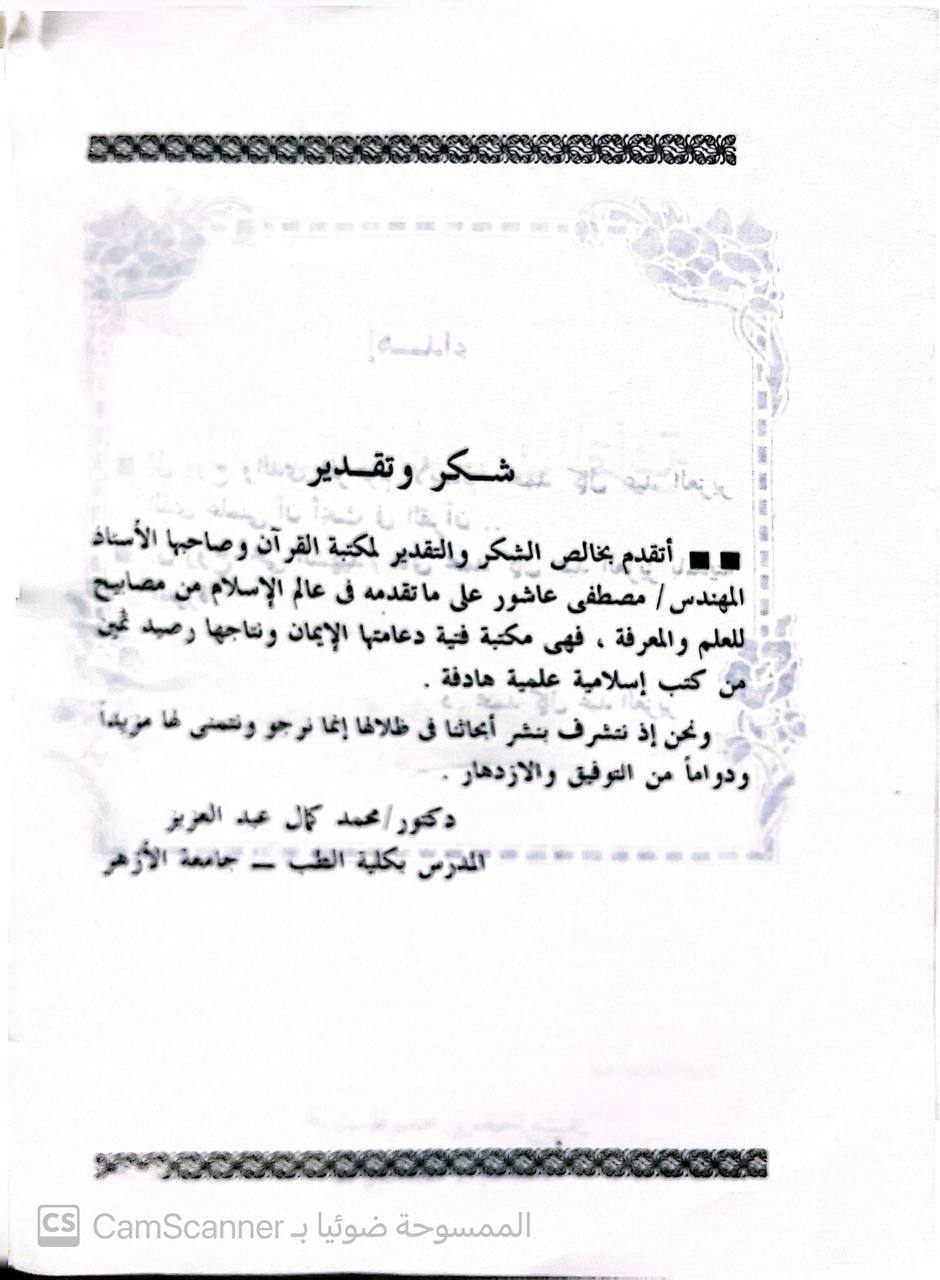 شكر وتقدير
■ ■ أتقدم بخالص الشكر والتقدير لمكتبة القرآن وصاحبها الأستاذ
المهندس/ مصطفى عاشور على ماتقدمه فى عالم الإسلام من مصابيح
للعلم والمعرفة ، فهى مكتبة فتية دعامتها الإيمان ونتاجها رصيد ثمين
من كتب إسلامية علمية هادفة .
ونحن إذ نتشرف بنشر أبحاثنا فى ظلالها إنما نرجو ونتمنى لها مزيداً
ودواماً من التوفيق والازدهار .
دكتور/محمد كمال عبد العزيز
المدرس بكلية الطب — جامعة الأزهر
CS CamScanner الممسوحة ضوئيا بـ